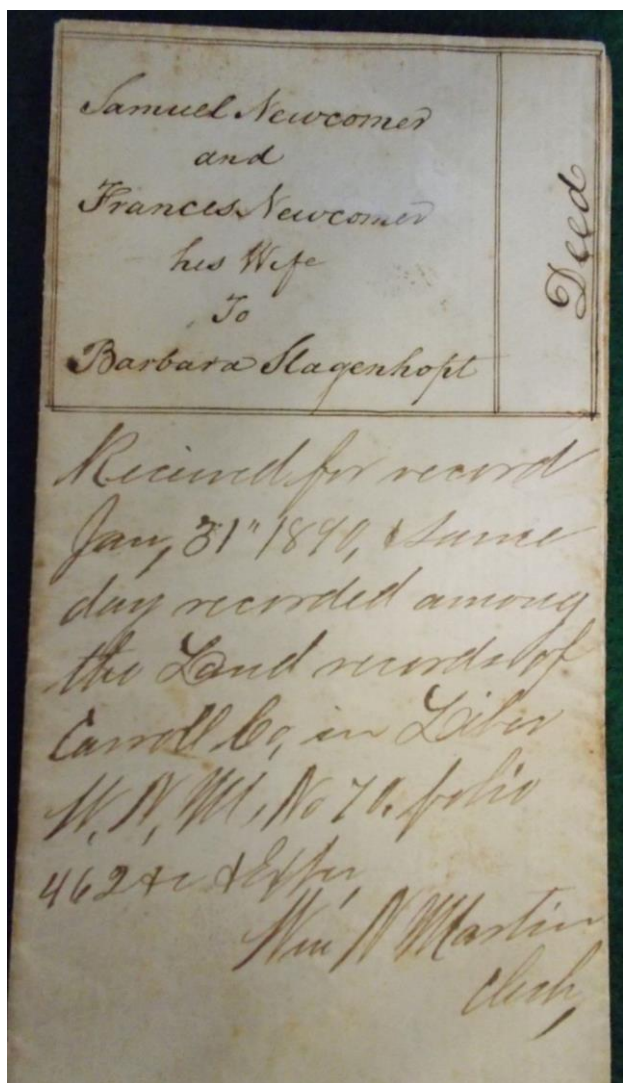 Samuel Newcomer
and
Frances Newcomer
his Wife
To
Barbara Slagenhopt
Deed
Recieved for record
Jan, 31" 1890, & same
day recorded among
the Land records of
Carroll Co, in Liber
W, N, M, No 70. folio
462 &c & Exr,
Wm N Martin
clerk,